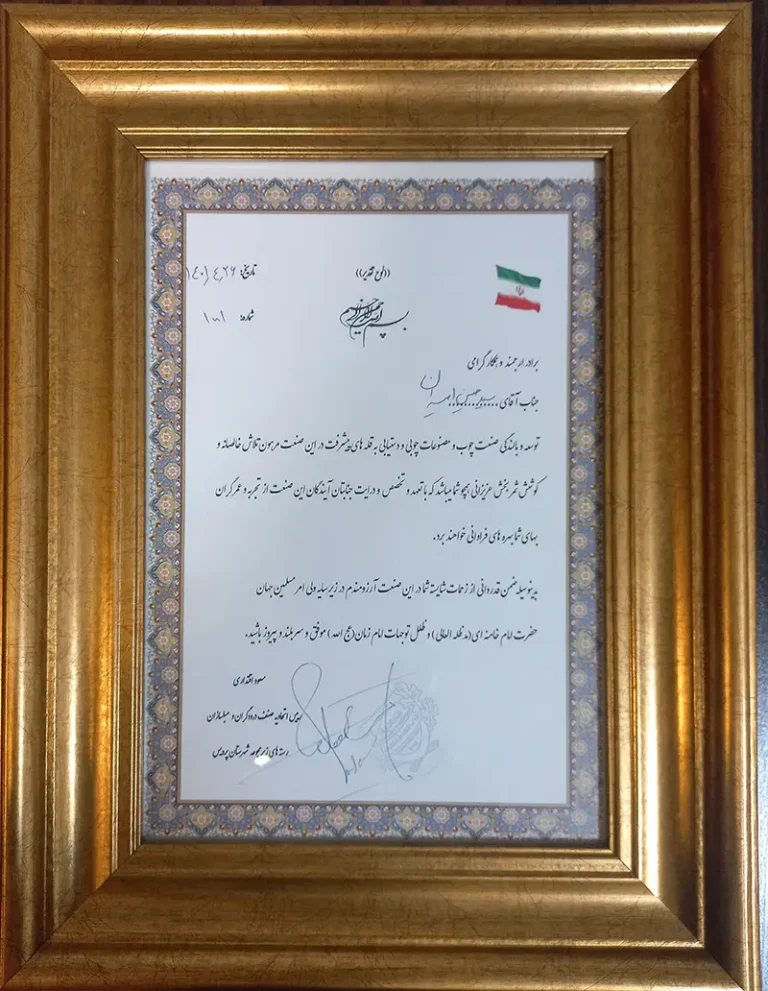 ((لوح تقدیر))
تاریخ: ۱۴۰۱/۴/۲۶
شماره: ۱۰۱
بسم الله الرحمن الرحیم
برادر ارجمند و همکار گرامی
جناب آقای ....سید حسن میران
توسعه و بالندگی صنعت چوب و مصنوعات چوبی و دستیابی به قله های پیشرفت در این صنعت مرهون تلاش خالصانه و
کوشش ثمربخش عزیزانی همچو شما میباشد که با تعهد و تخصص و درایت جنابتان آیندگان این صنعت از تجربه و عمر گران
بهای شما بهره های فراوانی خواهند برد.
بدینوسیله ضمن قدردانی از زحمات شایسته شما در این صنعت آرزومندم در زیر سایه ولی امر مسلمین جهان
حضرت امام خامنه ای (مدظله العالی) و ظلل توجهات امام زمان (عج الله) موفق و سربلند و پیروز باشید.
مسعود اقتداری
رییس اتحادیه صنف درودگران و مبلسازان
رسته های زیر مجموعه شهرستان پردیس